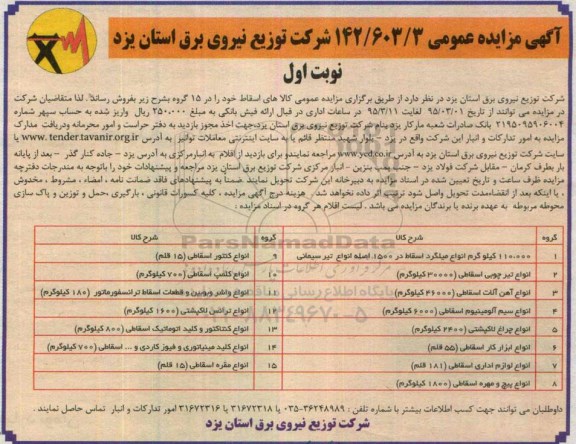 آگهی مزایده عمومی ۱۴۲/۶۰۳/۳ شرکت توزیع نیروی برق استان یزد
نوبت اول
شرکت توزیع نیروی برق استان یزد در نظر دارد از طریق برگزاری مزایده عمومی کالا های اسقاط خود را در ۱۵ گروه بشرح زیر بفروش رساند. لذا متقاضیان شرکت
در مزایده می توانند از تاریخ ۹۵/۰۳/۰۱ لغایت ۹۵/۳/۱۱ در ساعات اداری در قبال ارائه فیش بانکی به مبلغ ۲۵۰،۰۰۰ ریال واریز شده به حساب سپهر شماره
بانک صادرات شعبه مارکار یزد بنام شرکت توزیع نیروی برق استان یزد، جهت اخذ مجوز بازدید به دفتر حراست و امور محرمانه ودریافت مدارک
مزایده به امور تدارکات و انبار این شرکت واقع در به سایت اینترنتی معاملات توانیر به آدرس www.tender.tavanir.org.ir یا
سایت شرکت توزیع نیروی برق استان یزد به آدرس www.yed.co.ir مراجعه نمایند و برای بازدید از اقلام به انبار مرکزی به آدرس یزد - جاده کنار گذر - بعد از پایانه
بار بطرف کرمان - مقابل شرکت فولاد یزد - انبار مرکزی شرکت توزیع برق استان یزد مراجعه و پیشنهادات خود را باتوجه به مندرجات دفترچه
مزایده ظرف ساعت و تاریخ تعیین شده در اسناد مزایده به دبیرخانه این شرکت تحویل نمایند. ضمناً به پیشنهادهای فاقد ضمانت نامه ، امضاء ، مشروط ، مخدوش
، یا اینکه بعد از انقضامدت تحویل واصل شود ترتیب اثر داده نخواهد شد. هزینه درج آگهی مزایده ، کلیه کسورات قانونی ، بارگیری ،حمل و توزین و پاک سازی
محوطه مربوطه به عهده برنده یا برندگان مزایده می باشد . لیست اقلام هر گروه در اسناد مزایده .
گروه شرح کالا گروه شرح کالا
۱ ۱۱۰،۰۰۰ کیلو گرم انواع میلگرد اسقاط در ۱۵۰۰ اصله انواع تیر سیمانی ۹ انواع کنتور اسقاطی (۱۵ قلم)
۲ انواع تیر چوبی اسقاطی (۳۰۰۰۰ کیلوگرم) ۱۰ انواع کلمپ اسقاطی (۷۰۰ کیلوگرم)
۳ انواع آهن آلات اسقاطی (۴۶۰۰۰ کیلوگرم) ۱۱ انواع واشر وبوبین و قطعات اسقاط ترانسفورماتور (۱۸۰ کیلوگرم)
۴ انواع سیم آلومینیوم اسقاطی (۶۰۰۰ کیلوگرم) ۱۲ انواع ترانس لاکپشتی (۱۶۰۰ کیلوگرم)
۵ انواع چراغ لاکپشتی (۲۴۰۰ کیلوگرم) ۱۳ انواع کنتاکتور و کلید اتوماتیک اسقاطی (۸۰۰ کیلوگرم)
۶ انواع ابزار کار اسقاطی (۵۵ قلم) ۱۴ انواع کلید مینیاتوری و فیوز کاردی و ... اسقاطی (۷۰۰ کیلوگرم)
۷ انواع لوازم اداری اسقاطی (۱۸۱ قلم) ۱۵ انواع مقره اسقاطی (۱۵ قلم)
۸ انواع پیچ و مهره اسقاطی (۱۸۰۰ کیلوگرم)
داوطلبان می توانند جهت کسب اطلاعات بیشتر با شماره تلفن : ۳۶۲۴۸۹۸۹-۰۳۵ یا ۳۱۶۷۲۳۱۸ یا ۳۱۶۷۲۳۱۶ امور تدارکات و انبار تماس حاصل نمایند .
شرکت توزیع نیروی برق استان یزد
ParsNamadData